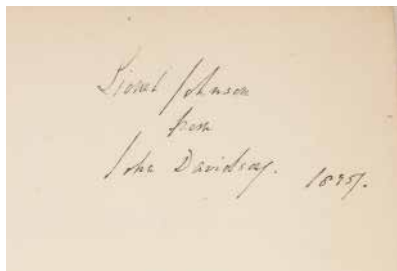 Lionel Johnson
from
John Davidson. 1895.